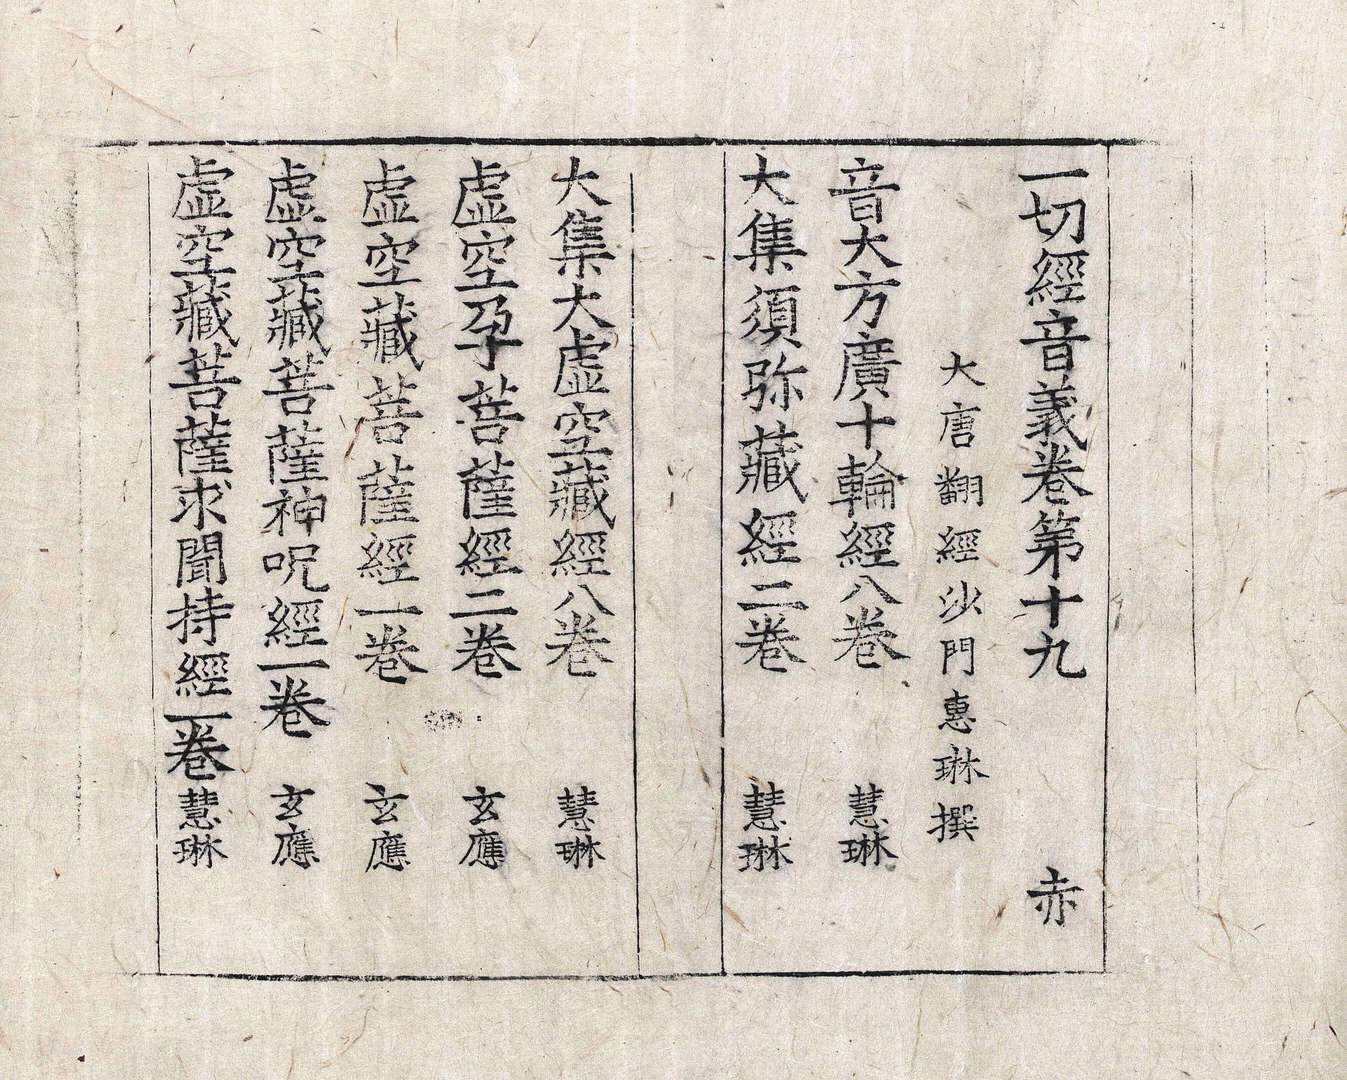 一切經音義卷第十九 赤
大唐翻經沙門惠琳撰
音大方廣十輪經八卷 慧琳
大集須弥藏經二卷 慧琳
大集大虛空藏經八卷 慧琳
虛空孕菩薩經二卷 玄應
虛空藏菩薩經一卷 玄應
虛空藏菩薩神呪經一卷 玄應
虛空藏菩薩求聞持經一卷 慧琳